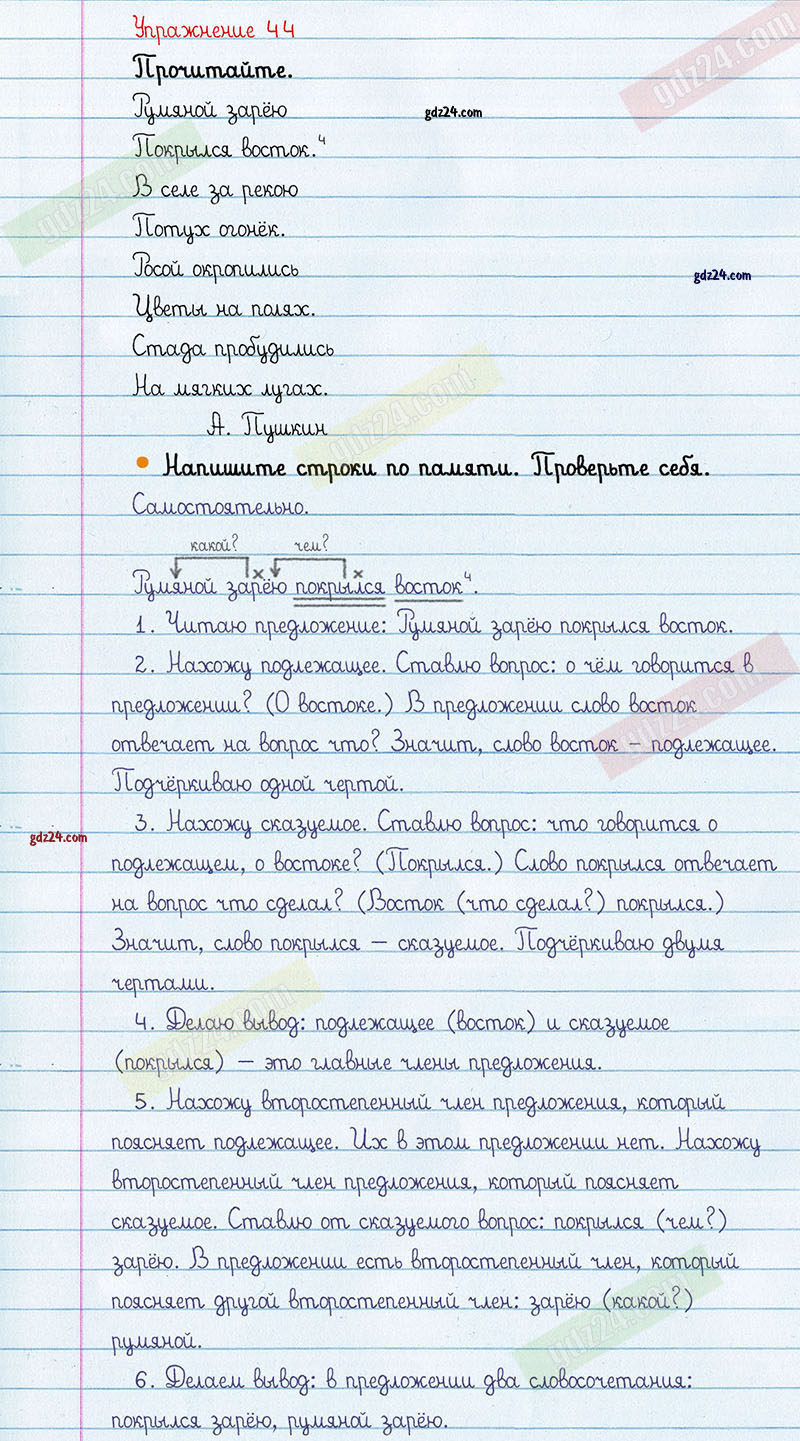 Упражнение 44
Прочитайте.
Румяной зарёю
gdz24.com
Покрылся восток.⁴
В селе за рекою
Потух огонёк.
Росой окропились
gdz24.com
Цветы на полях.
Стада пробудились
На мягких лугах.
А. Пушкин
• Напишите строки по памяти. Проверьте себя.
Самостоятельно.
какой? чем?
х х
Румяной зарёю покрылся восток⁴.
1. Читаю предложение: Румяной зарёю покрылся восток.
2. Нахожу подлежащее. Ставлю вопрос: о чём говорится в
предложении? (О востоке.) В предложении слово восток
отвечает на вопрос что? Значит, слово восток – подлежащее.
Подчёркиваю одной чертой.
3. Нахожу сказуемое. Ставлю вопрос: что говорится о
gdz24.com
подлежащем, о востоке? (Покрылся.) Слово покрылся отвечает
на вопрос что сделал? (Восток (что сделал?) покрылся.)
Значит, слово покрылся — сказуемое. Подчёркиваю двумя
чертами.
4. Делаю вывод: подлежащее (восток) и сказуемое
(покрылся) — это главные члены предложения.
5. Нахожу второстепенный член предложения, который
поясняет подлежащее. Их в этом предложении нет. Нахожу
второстепенный член предложения, который поясняет
сказуемое. Ставлю от сказуемого вопрос: покрылся (чем?)
зарёю. В предложении есть второстепенный член, который
поясняет другой второстепенный член: зарёю (какой?)
румяной.
6. Делаем вывод: в предложении два словосочетания:
покрылся зарёю, румяной зарёю.
gdz24.com
gdz24.com
gdz24.com
gdz24.com
gdz24.com
gdz24.com